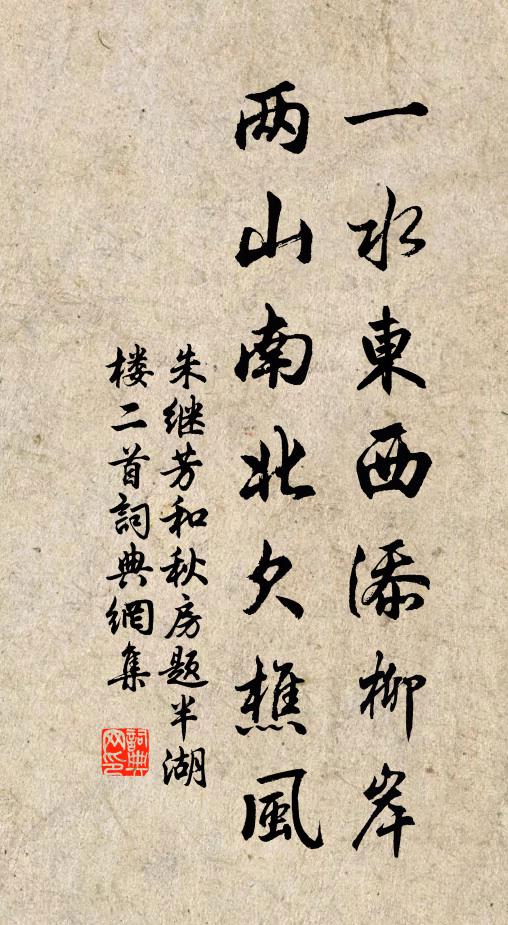 一水東西添柳岸
两山南北欠樵風
朱继芳和秋房题半湖
楼二首詞典網集
詞典网印